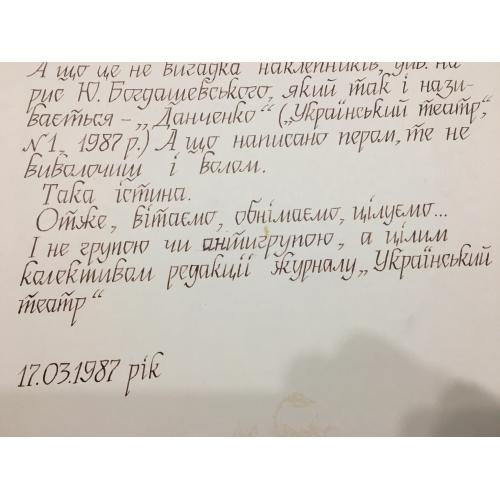 А що це не вигадка наклепників, див. на
рис Ю. Богдашевського, який так і нази-
вається – „Данченко“ („Український театр“,
№1, 1987 р.) А що написано пером, те не
виволочиш і волом.
Така істина.
Отже, вітаємо, обнімаємо, цілуємо...
І не групою чи антигрупою, а цілим
колективом редакції журналу „Український
театр“
17.03.1987 рік